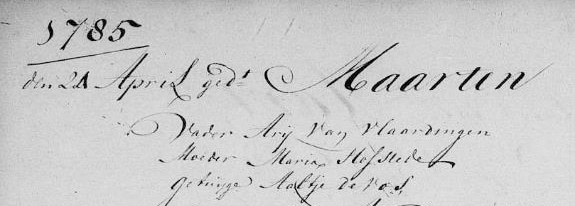 1785
den 24 April ged.t Maarten
Vader Arij van Vlaardingen
Moeder Maria Hofstede
getuijge Aaltje de Vos